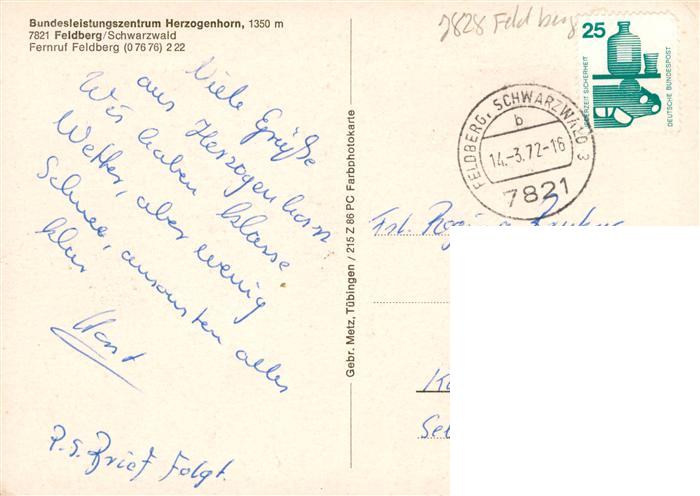 Bundesleistungszentrum Herzogenhorn, 1350 m
7821 Feldberg/Schwarzwald
Fernruf Feldberg (0 76 76) 2 22
Viele Grüße
aus Herzogenhorn
Wir haben klasse
Wetter, aber wenig
Schnee, ansonsten alles
klar
Horst
P.S. Brief folgt.
Gebr. Metz, Tübingen / 215 Z 86 PC Farbphotokarte
7828 Feldberg
25
JEDERZEIT SICHERHEIT
DEUTSCHE BUNDESPOST
FELDBERG, SCHWARZWALD 3
b
14.-3.72-16
7821
Frl.